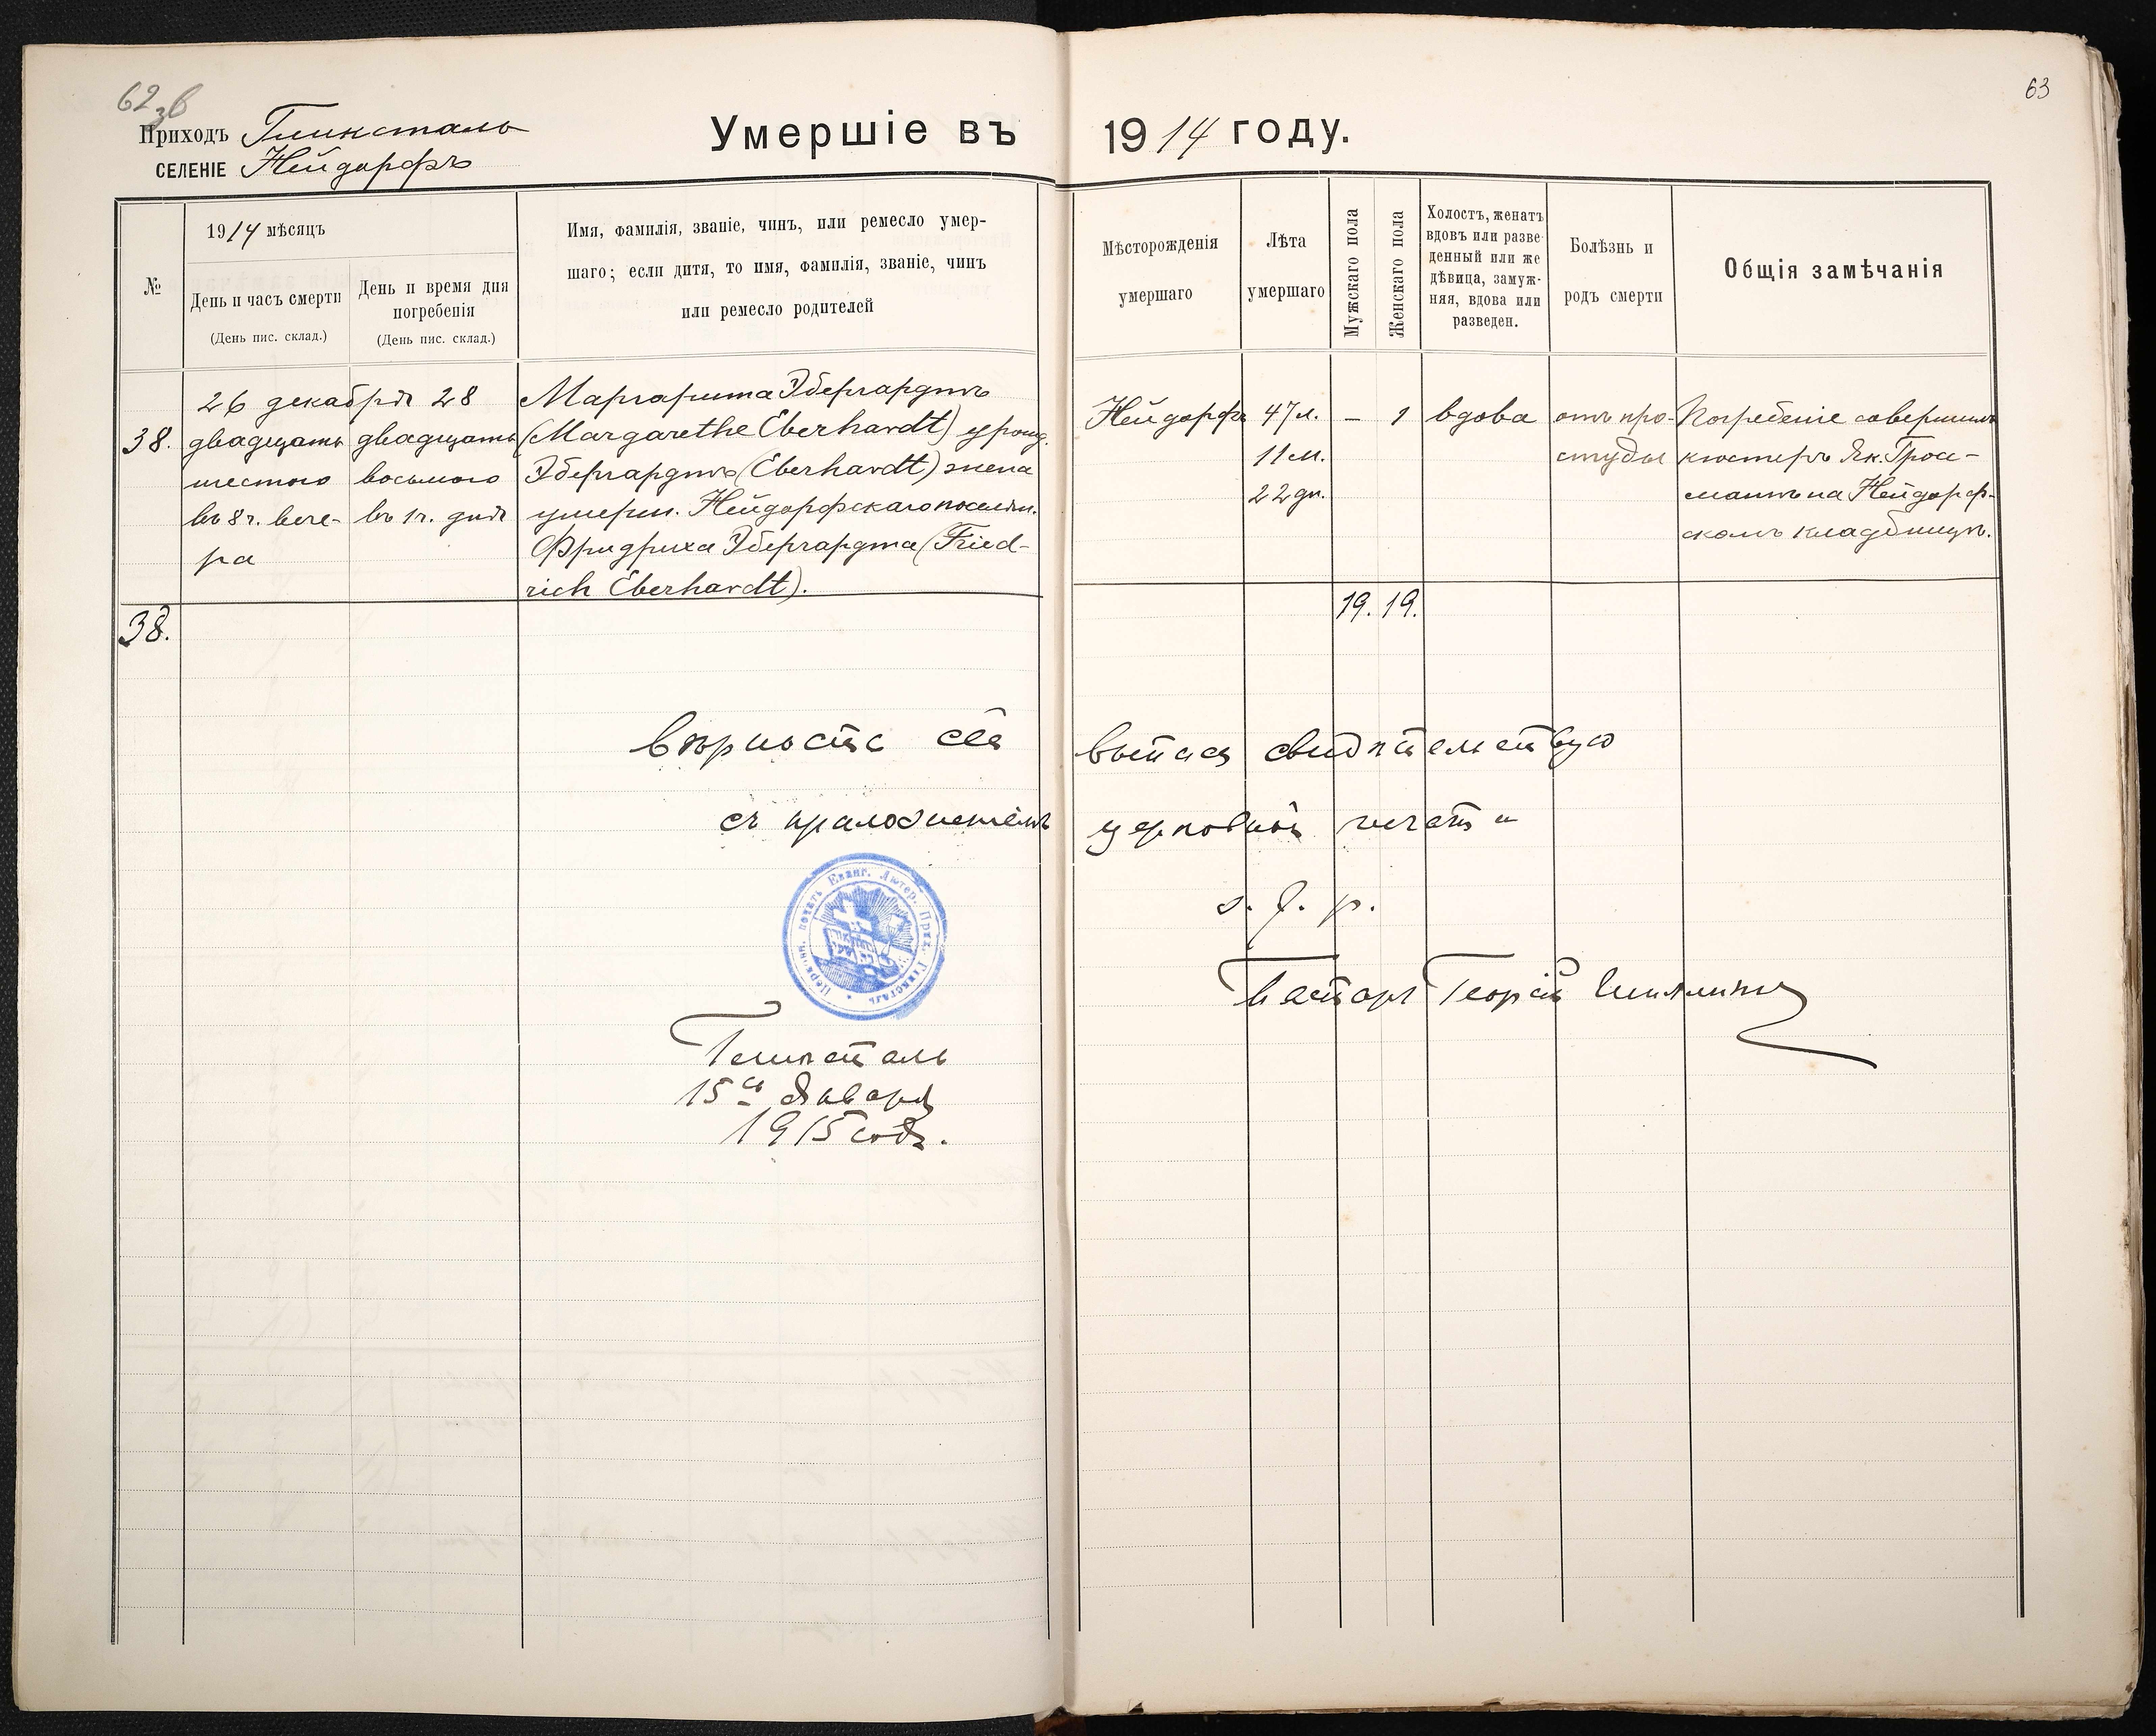 62 зв
63
Приходъ Глюкстальъ
СЕЛЕНІЕ Нейдорфъ
Умершіе въ 1914 году.
№
1914 мѣсяцъ
День и часъ смерти
(День пис. склад.)
День и время дня
погребенія
(День пис. склад.)
Имя, фамилія, званіе, чинъ, или ремесло умер-
шаго; если дитя, то имя, фамилія, званіе, чинъ
или ремесло родителей
Мѣсторожденія
умершаго
Лѣта
умершаго
Мужскаго пола
Женскаго пола
Холостъ, женатъ
вдовъ или разве-
денный или же
дѣвица, замуж-
няя, вдова или
разведен.
Болѣзнь и
родъ смерти
Общія замѣчанія
38.
26 декабря 28
двадцать
шестого
въ 8 ч. вече-
ра
двадцать
восьмого
въ 1 ч. дня
Маргарита Эбергардтъ
(Margarethe Eberhardt) урожд.
Эбергардтъ (Eberhardt) жена
умерш. Нейдорфскаго поселян.
Фридриха Эбергардта (Fried-
rich Eberhardt).
Нейдорфъ
47 л.
11 м.
22 дн.
–
1
вдова
отъ про-
студы
Погребеніе совершилъ
кюстеръ Як. Гросс-
манъ на Нейдорф-
скомъ кладбищѣ.
38.
19. 19.
Вѣрность сей выписи свидѣтельствую
съ приложеніемъ церковной печати
s. f. p.
Церковн. печать Еванг. Лютер. Прих. Глюксталь
Пасторъ Георгій Шиллингъ
Глюксталь
15го Января
1915 года.